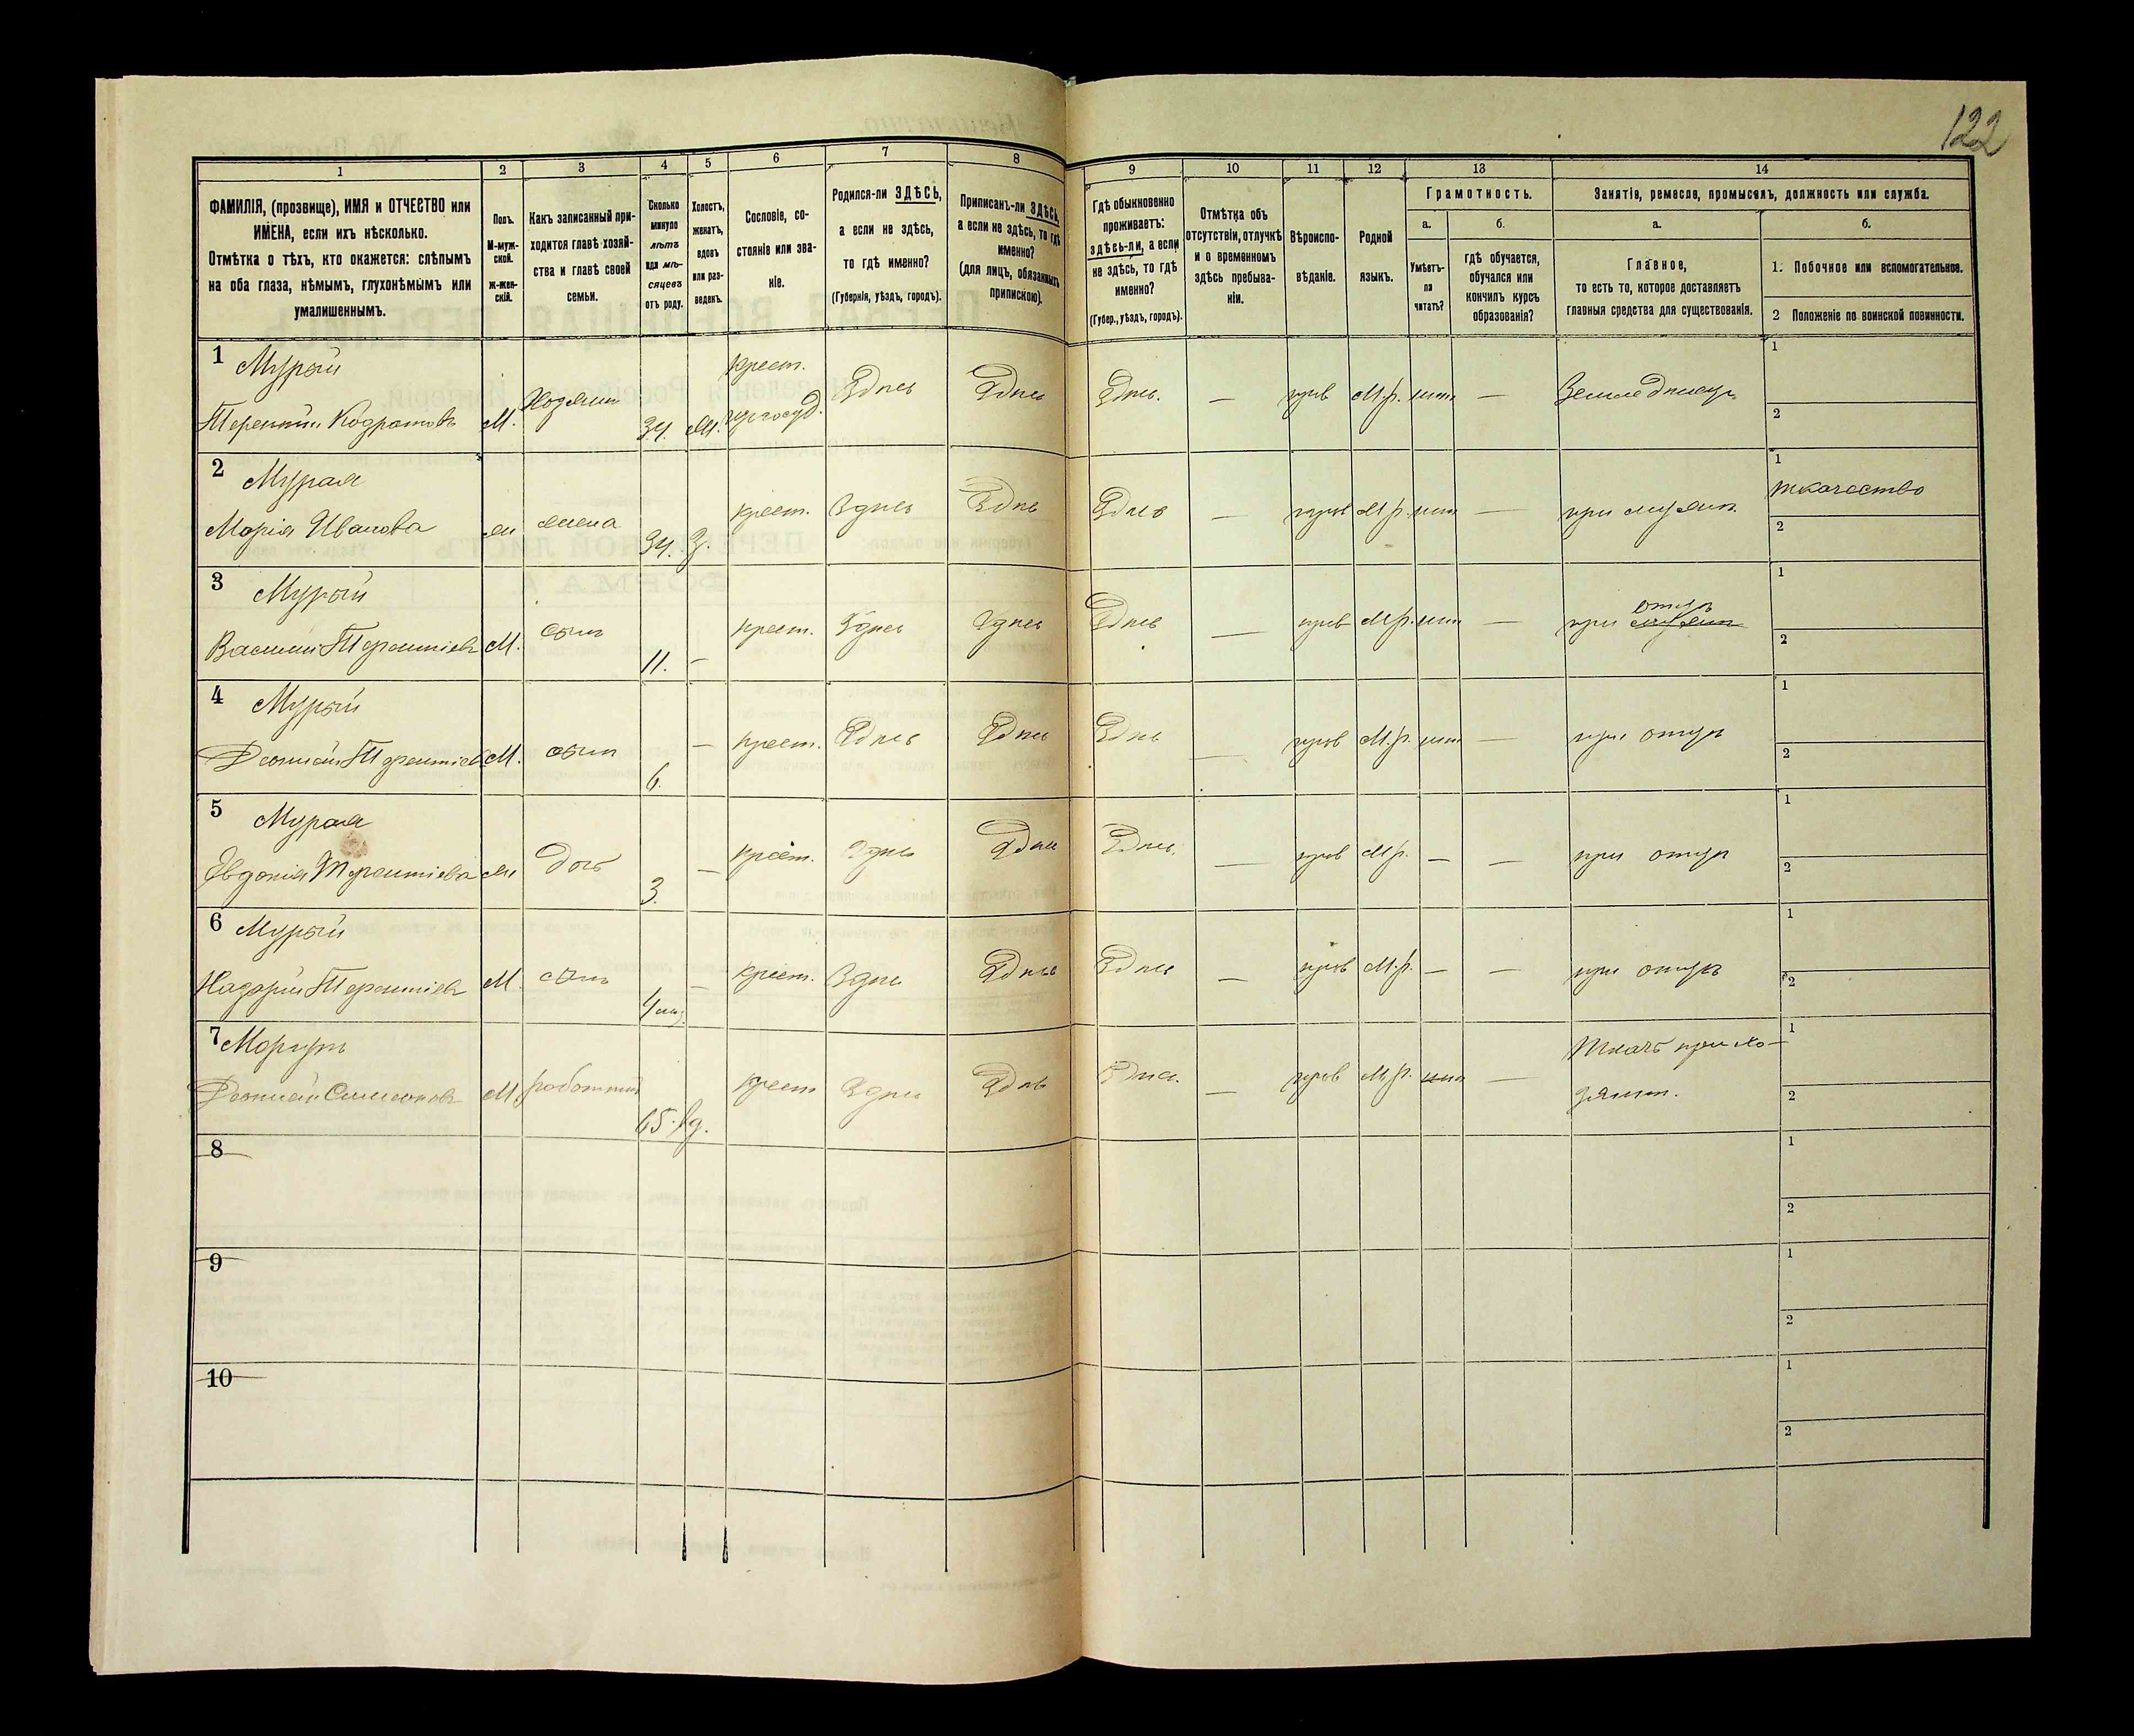 122
1 2 3 4 5 6 7 8 9 10 11 12 13 14
ФАМИЛІЯ, (прозвище), ИМЯ и ОТЧЕСТВО или
ИМЕНА, если ихъ нѣсколько.
Отмѣтка о тѣхъ, кто окажется: слѣпымъ
на оба глаза, нѣмымъ, глухонѣмымъ или
умалишеннымъ.
Полъ.
М-муж-
ской.
ж-жен-
скій.
Какъ записанный при-
ходится главѣ хозяй-
ства и главѣ своей
семьи.
Сколько
минуло
лѣтъ
или мѣ-
сяцевъ
отъ роду.
Холостъ,
женатъ,
вдовъ
или раз-
веденъ.
Сословіе, со-
стояніе или зва-
ніе.
Родился-ли ЗДѢСЬ,
а если не здѣсь,
то гдѣ именно?
(Губернія, уѣздъ, городъ).
Приписанъ-ли ЗДѢСЬ,
а если не здѣсь, то гдѣ
именно?
(для лицъ, обязанныхъ
припискою).
Гдѣ обыкновенно
проживаетъ:
здѣсь-ли, а если
не здѣсь, то гдѣ
именно?
(Губер., уѣздъ, городъ).
Отмѣтка объ
отсутствіи, отлучкѣ
и о временномъ
здѣсь пребыва-
ніи.
Вѣроиспо-
вѣданіе.
Родной
языкъ.
Грамотность.
а.
Умѣетъ-
ли
читать?
б.
гдѣ обучается,
обучался или
кончилъ курсъ
образованія?
Занятіе, ремесло, промыселъ, должность или служба.
а.
Главное,
то есть то, которое доставляетъ
главныя средства для существованія.
б.
1. Побочное или вспомогательное.
2 Положеніе по воинской повинности.
1 Мурый крест. 1
Терентий Кодратовъ М. Хозяинъ 34. М. Здѣсь Здѣсь Здѣсь. — прав М.р. нѣт — Земледѣлецъ 2
2 Мурая 1 ткачество
Марія Иванова жена 34. З. крест. Здѣсь Здѣсь Здѣсь — прав М.р. нѣт — при мужѣ 2
3 Мурый 1
Василий Терентіевъ М. сынъ 11. — крест. Здѣсь Здѣсь Здѣсь — прав М.р. нѣт — при отцѣ 2
4 Мурый 1
Терентіевъ М. сынъ 6. — крест. Здѣсь Здѣсь Здѣсь — прав М.р. нѣт — при отцѣ 2
5 Мурая 1
Евдокія Терентіева дочь 3. — крест. Здѣсь Здѣсь Здѣсь. — прав М.р. — — при отцѣ 2
6 Мурый 1
Назарий Терентіевъ М. сынъ 4 мѣс. — крест. Здѣсь Здѣсь Здѣсь — прав М.р. — — при отцѣ 2
7 Ткачъ при хо- 1
М. работникъ 65. вд. крест Здѣсь Здѣсь Здѣсь. — прав М.р. нѣт — зяинѣ. 2
8 1
2
9 1
2
10 1
2